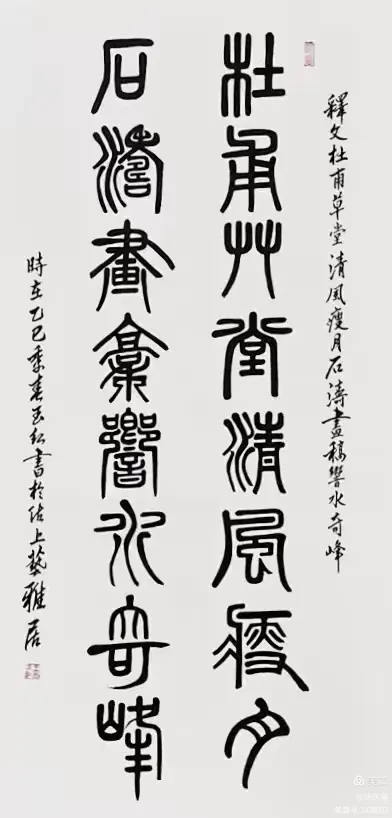 釋文杜甫草堂清風瘦月石濤畫稿響水奇峰
杜甫艸堂清風瘦月
石濤畫稾響水奇峰
時在乙巳季春玉紅書於沽上藝雅居